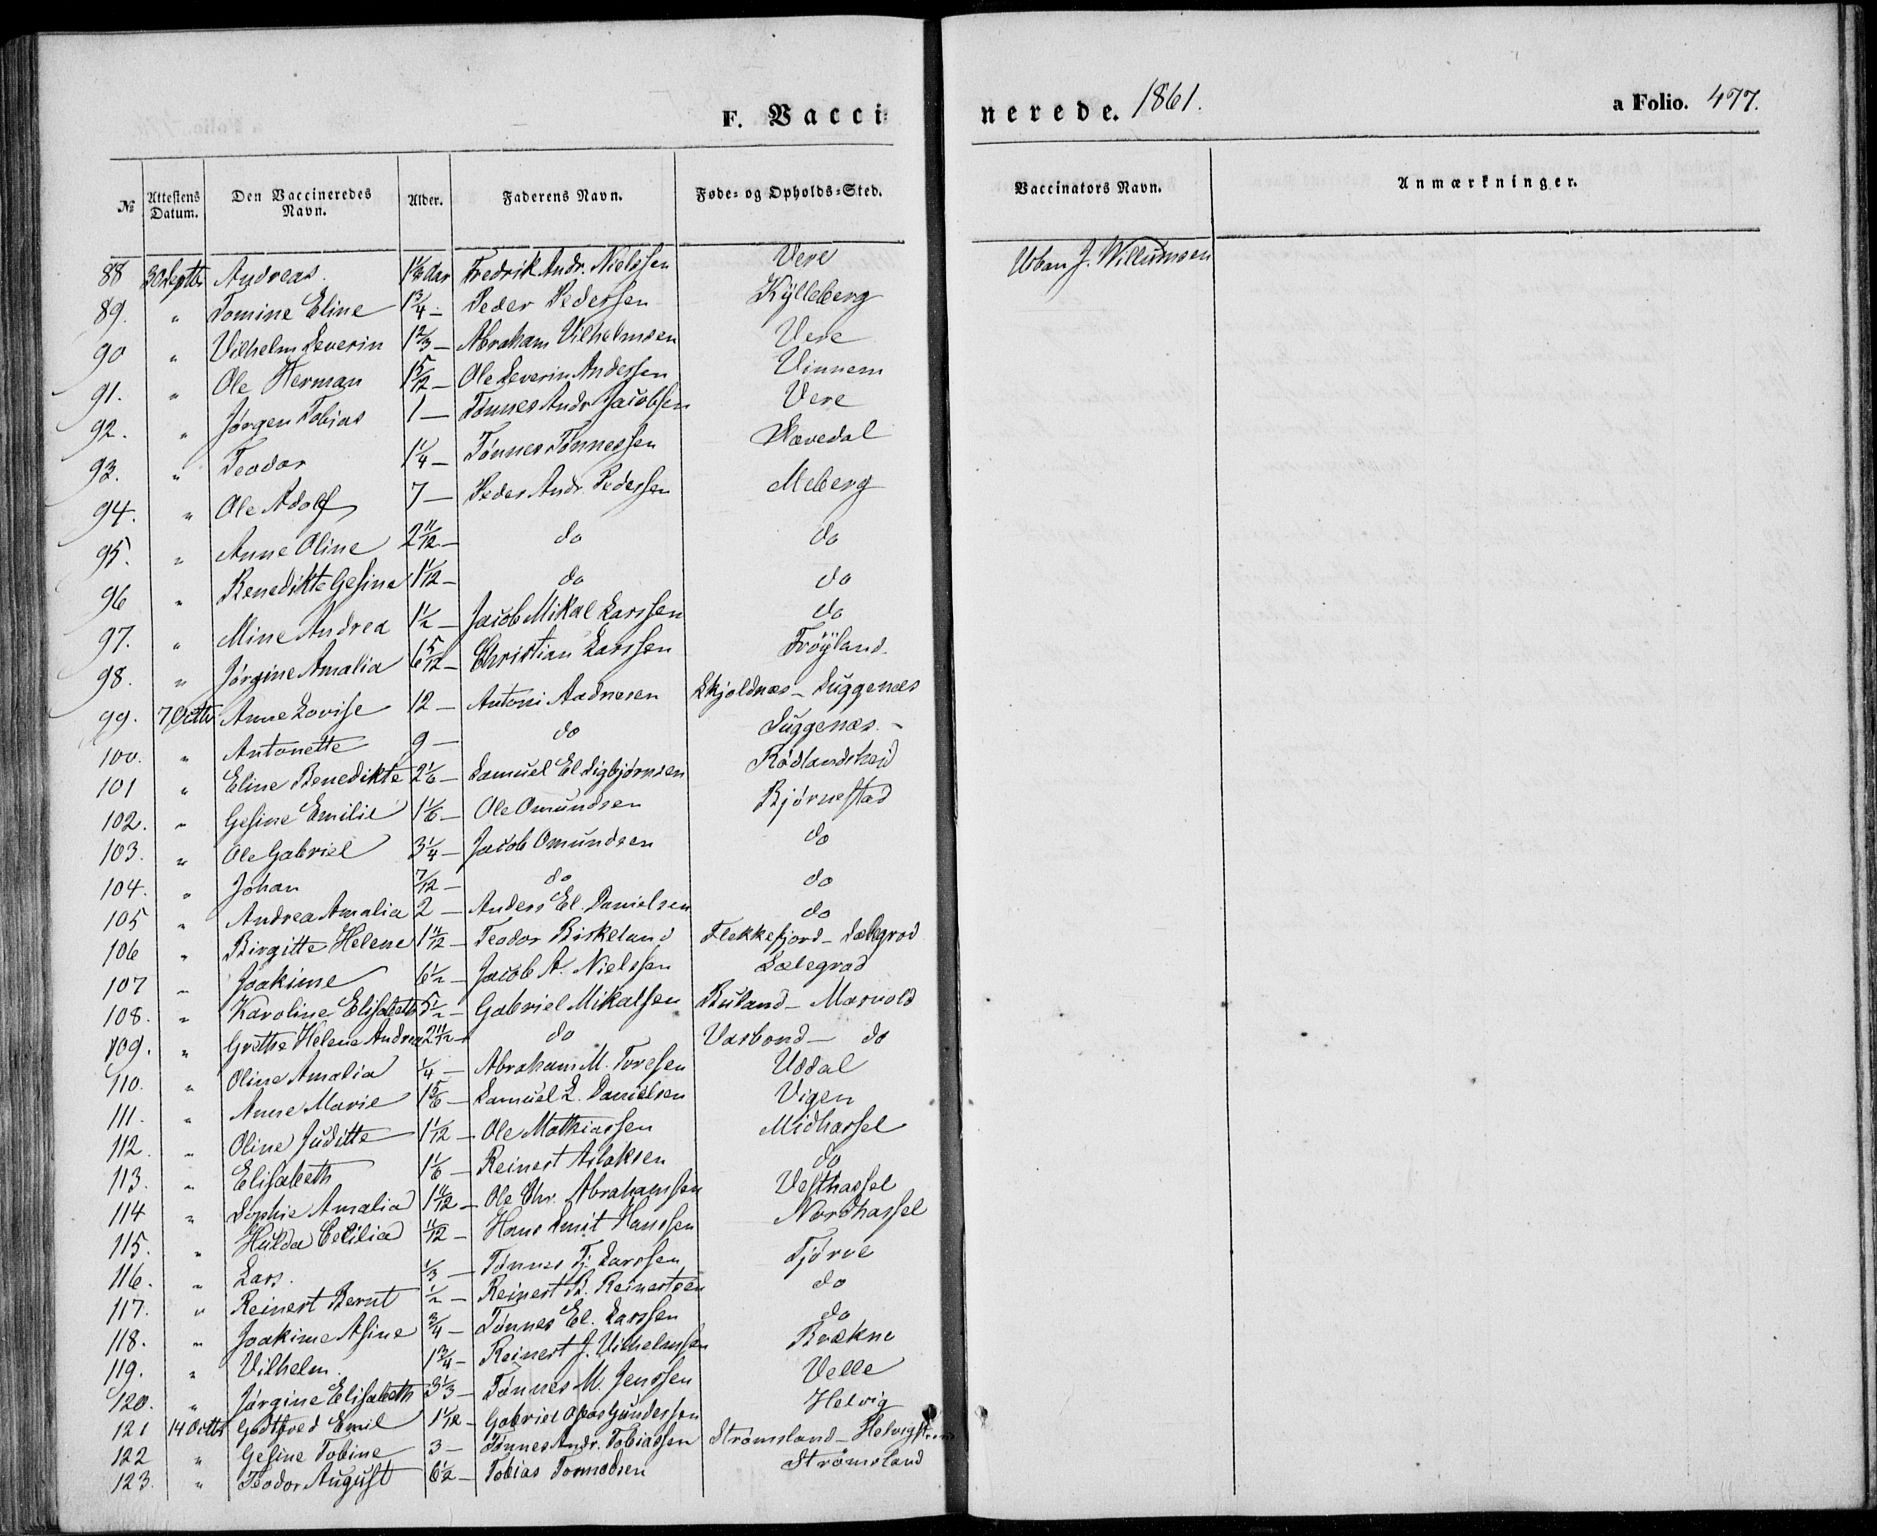 F. Vaccinerede. 1861. a Folio. 477.
№ Attestens Datum. Den Vaccineredes Navn. Alder. Faderens Navn. Føde- og Opholds-Sted. Vaccinators Navn. Anmærkninger.
88 30 Septbr Andreas. Fredrik Andr. Nielssen Vere Urban J. Willumsen
89. " Tomine Eline 1 3/4 – Peder Pedersen Kylleberg
90 " Vilhelm Severin 1 2/3 – Abraham Vilhelmsen Vere
91. " Ole Herman 1 5/12 – Ole Severin Andersen Vinnem
92. " Jørgen Tobias 1 – Tønnes Andr. Jacobsen Vere
93. " Teodor 1 1/4 – Tønnes Tønnessen
94. " Ole Adolf 7 – Peder Andr. Pedersen Meberg
95. " Anne Oline 2 11/12 – do do
96 " Benedikte Gesine 1 1/12 – do do
97. " Mine Andrea 1 1/2 – Jacob Mikal Larssen do
98. " Jørgine Amalia 6 5/12 – Christian Larssen Frøyland.
99. 7 Octbr Anne Lovise 12 – Antoni Aadnesen Skjoldnæs – Duggenæs
100. " Antonette 9 – do Duggenæs. –
101 " Eline Benedikte 2 1/6 – Samuel El. Sigbjørnsen Rødlandsheid
102. " Gesine Emilie 1 1/6 – Ole Omundsen Bjørnestad
103. " Ole Gabriel 3 1/4 – Jacob Omundsen do
104. " Johan 7/12 – do do
105 " Andrea Amalia 2 – Anders El. Danielsen do
106 " Birgitte Helene 1 11/12 – Teodor Birkeland Flekkefjord – Sælegrod
107 " Joakime 6 1/2 – Jacob A. Nielssen Sælegrod
108. " Karoline Elisabeth 5 1/2 – Gabriel Mikalsen Buland – Marvold
109. " Grethe Helene Andrea do Vasbond – do
110. " Oline Amalia 1/4 – Abraham M. Toresen Uddal
111. " Anne Marie 1 5/6 – Samuel L. Danielsen Vigen
112. " Oline Juditte 1 1/12 – Ole Mathiassen Midhassel
113. " Elisabeth 1 1/6 – Reinert Aslaksen do
114 " Sophie Amalia 1 11/12 – Ole Chr. Abrahamsen Vesthassel
115. " Hulda Cecilia 11/12 – Hans Smit Hanssen Nordhassel
116. " Lars. 1/3 – Tønnes Tj. Larssen Tjørve
117. " Reinert Bernt 1/2 – Reinert B. Reinertsen do
118. " Joakime Asine 3/4 – Tønnes El. Larssen do
119. " Vilhelm. 1 3/4 – Reinert J. Vilhelmsen Brekne
120. " Jørgine Elisabeth 3 1/3 – Tønnes M. Jenssen Velle
121 14 Octbr Godtfred Emil 1 1/12 – Gabriel Gundersen Helvig
122 " Gesine Tobine 3 – Tønnes Andr. Tobiassen Strømsland – Helvig
123. " Teodor August 6 1/2 – Tobias Tormodsen Strømsland